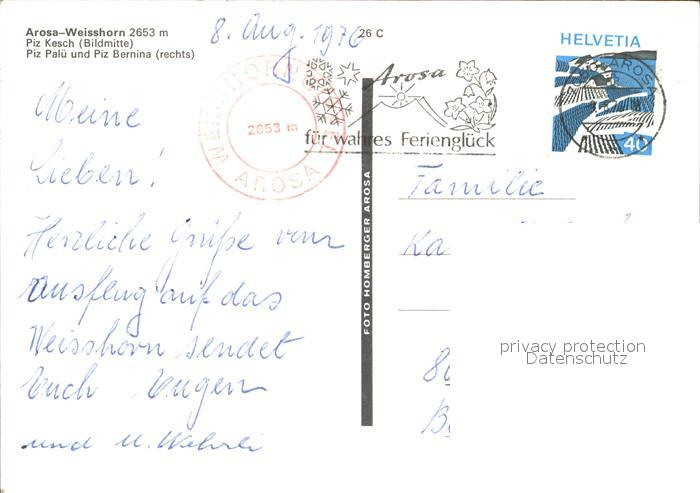 Arosa-Weisshorn 2653 m
Piz Kesch (Bildmitte)
Piz Palü und Piz Bernina (rechts)
8. Aug. 1976
26 C
HELVETIA
40
AROSA
Arosa
für wahres Ferienglück
WEISSHORN
2653 m
AROSA
Meine
Lieben!
Herzliche Grüße vom
Ausflug auf das
Weisshorn sendet
Euch Eugen
und M. Wehrli
FOTO HOMBERGER AROSA
Familie
Ka
8
B
privacy protection
Datenschutz